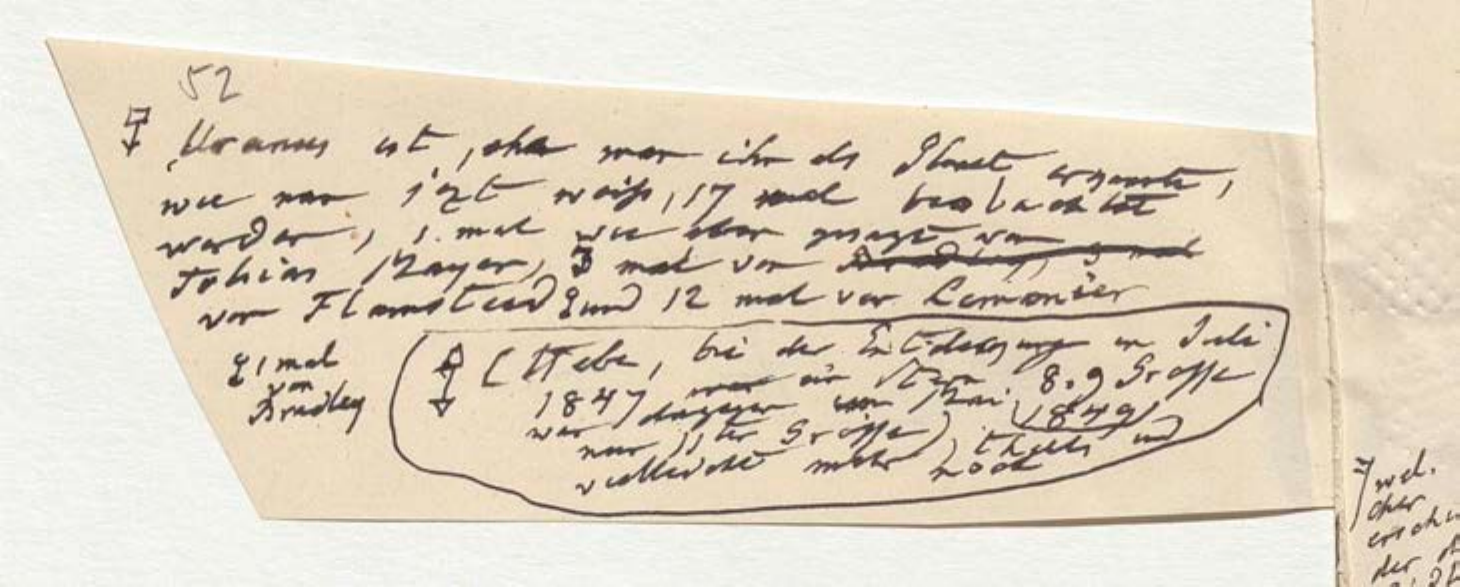 52
Uranus ist, ehe man ihn als Planet erkannte,
wie man jezt weiß, 17 mal beobachtet
worden, 1. mal wie oben gesagt von
Tobias Mayer, 3 mal von Bradley, 5 mal
von Flamsteed und 12 mal von Lemonier
1 mal
von
Bradley
(Hebe, bei der Entdekkung im Juli
1847 war ein Stern 8.9 Grösse
war dagegen im Mai 1849
nur 11ter Grösse)
vielleicht mehr noch
wel.
cher
der